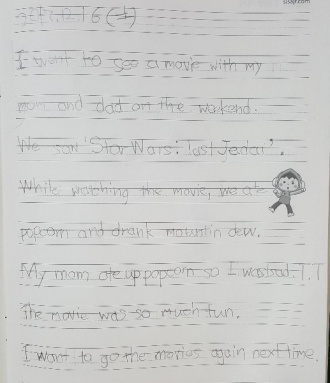 I went to see a movie with my
mom and dad on the weekend.
We saw 'Star Wars: last Jedai'.
While watching the movie, we ate
popcorn and drank mountin dew.
My mom ate up popcorn so I was sad T.T
The movie was so much fun.
I want to go the movies again next time.